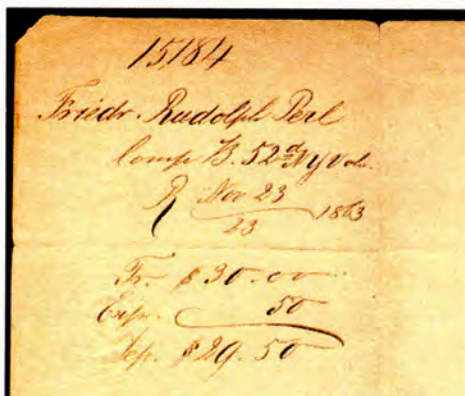 15184
Friedr. Rudolph Perl
Comp B. 52d NY Vol.
R Nov 23
23 1863
Fr. $30.00
Exp. 50
Dep. $29.50